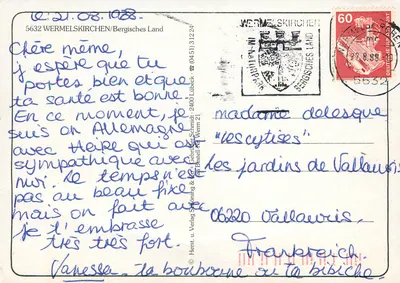 le 21.08.1988.
5632 WERMELSKIRCHEN/Bergisches Land
Chère mémé,
j'espère que tu
portes bien et que
ta santé est bonne.
En ce moment, je
suis en Allemagne
avec Heike qui est
sympathique avec
moi. Le temps n'est
pas au beau fixe
mais on fait avec
je t'embrasse
très très fort.
Vanessa - ta bouboune ou ta bibiche.
WERMELSKIRCHEN
BERGISCHES LAND
60
5632
madame delesque
"les cytises"
Les jardins de Vallauris
06220 Vallauris.
Frankreich.